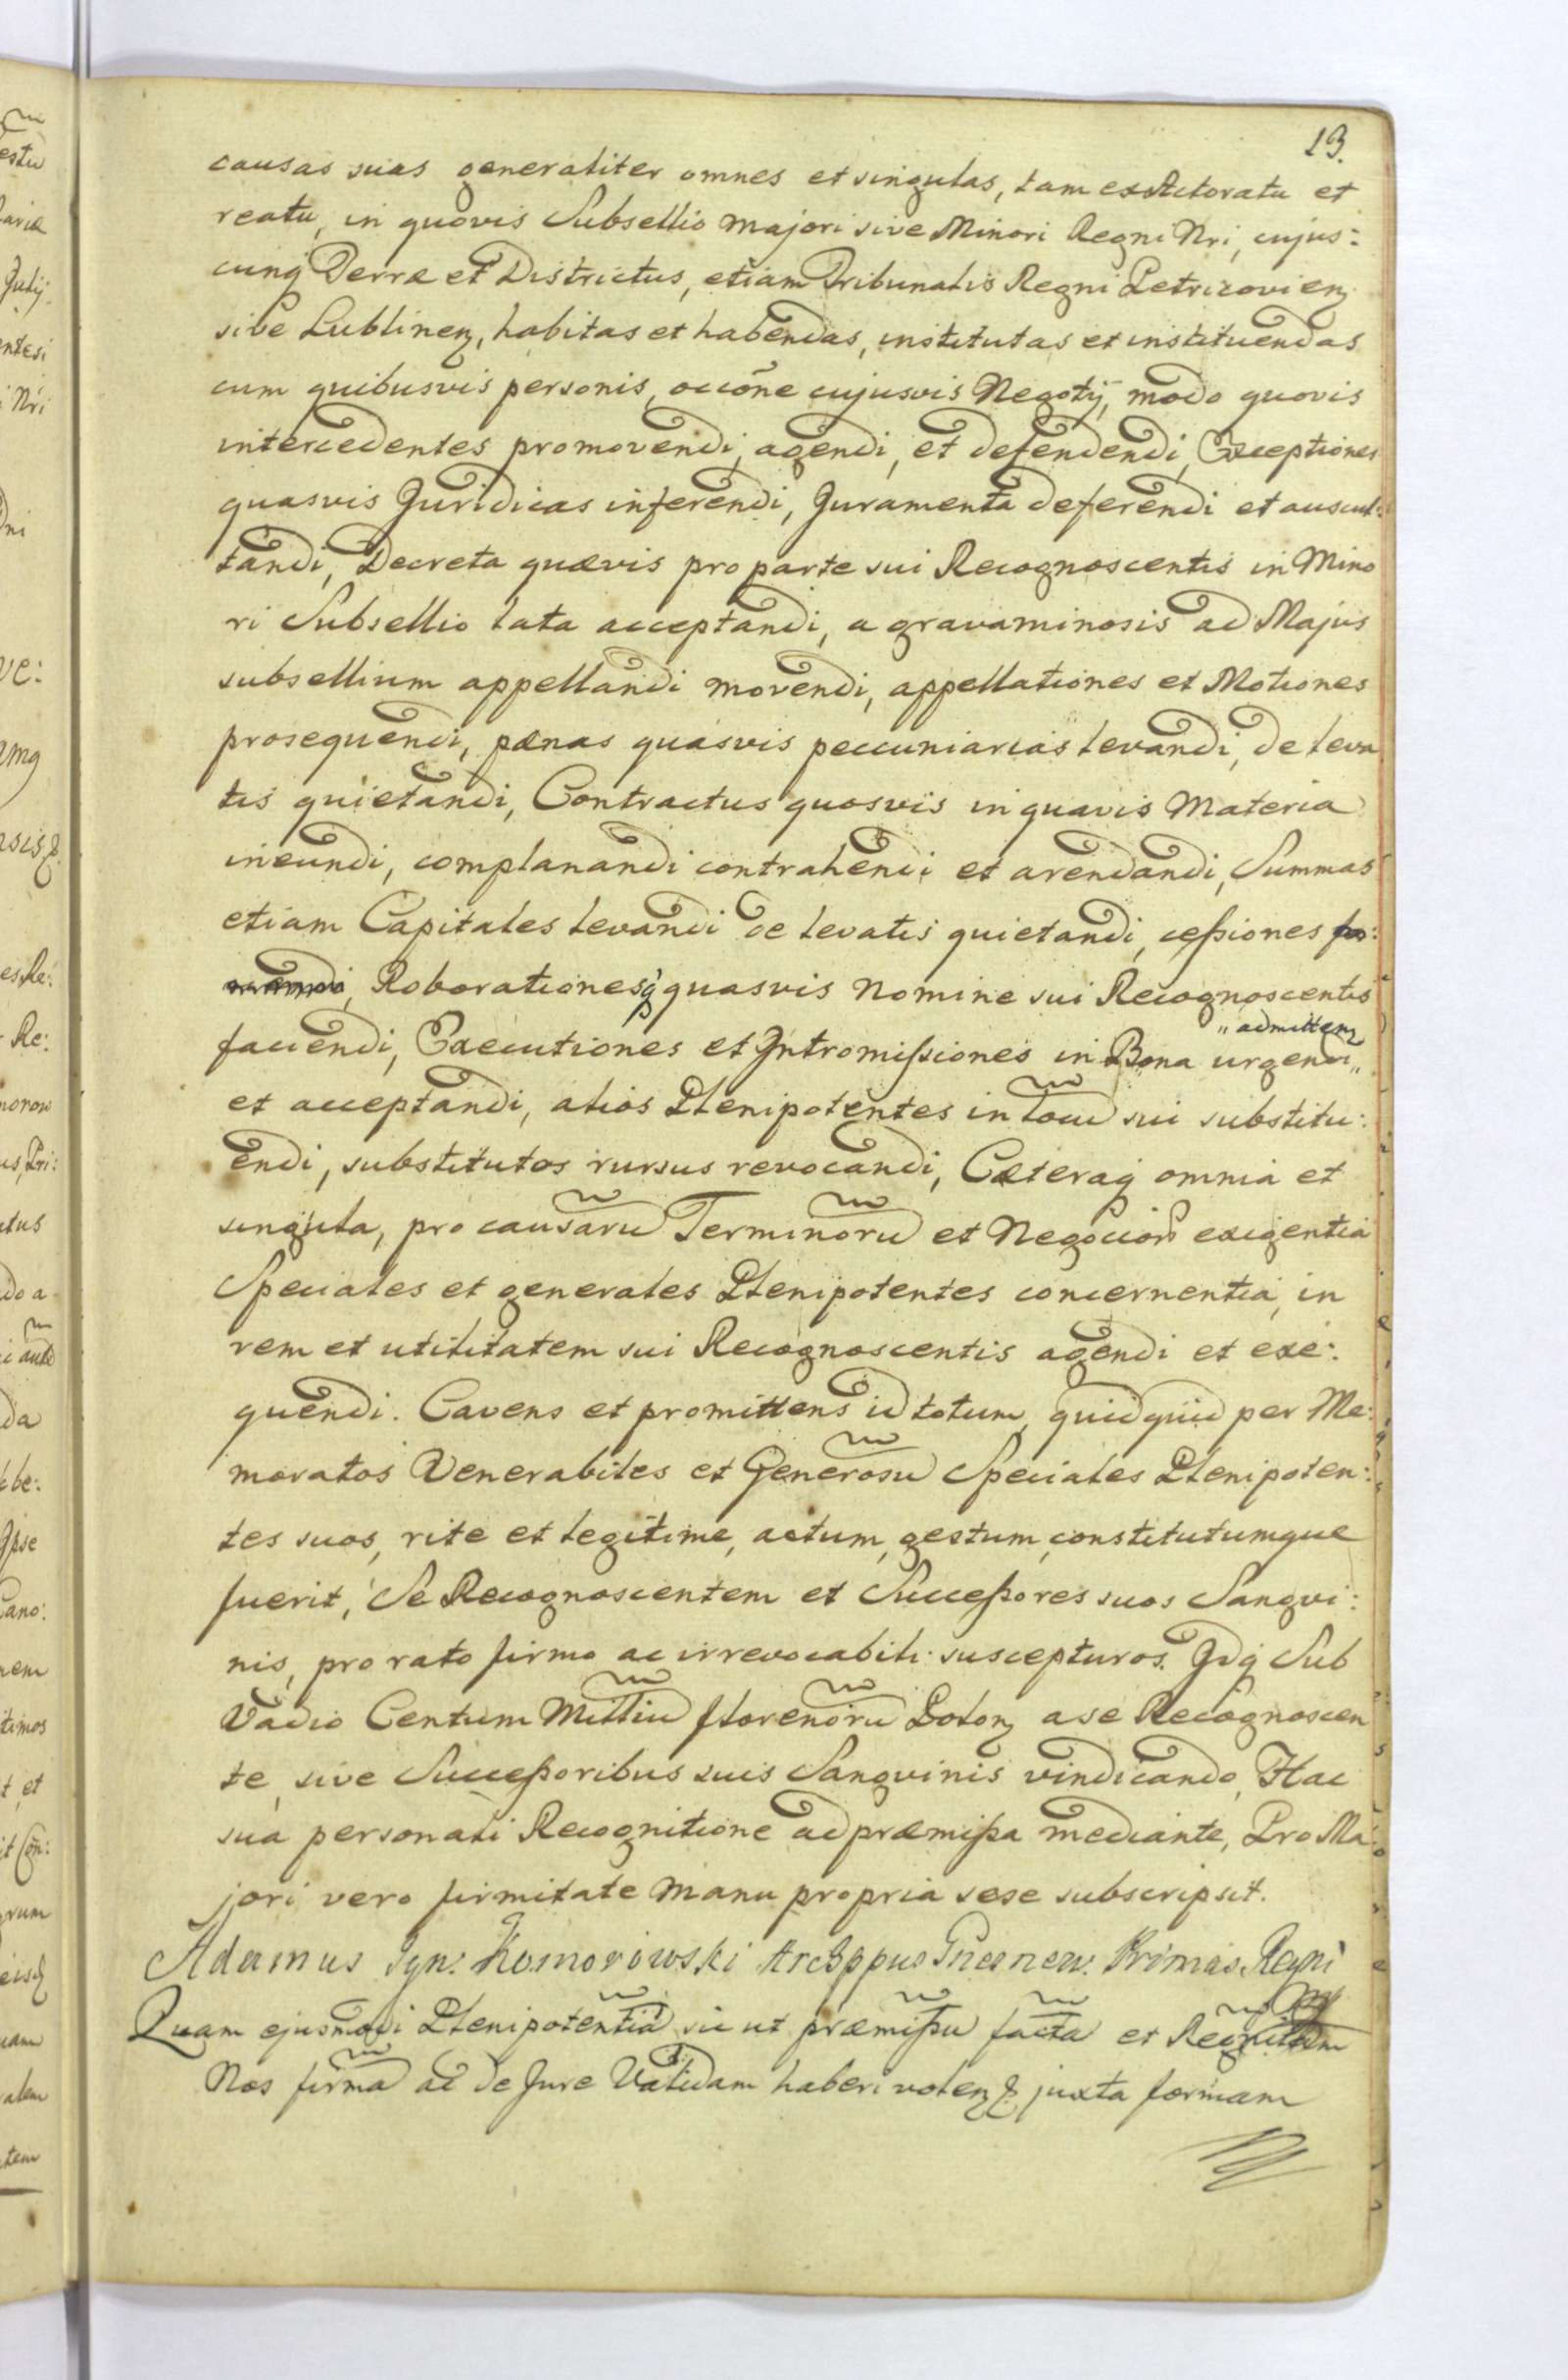 13.
causas suas generaliter omnes et singulas, tam ex Actoratu et
reatu, in quovis Subsellio majori sive Minori Regni Nri, cujus:
cunq Terræ et Districtus, etiam Tribunalis Regni Petricovien
sive Lublinen, habitas et habendas, institutas et instituendas
cum quibusvis personis, occõne cujusvis Negotÿ, modo quovis
intercedentes promovendi, agendi, et defendendi, Exceptiones
quasvis Juridicas inferendi, Juramenta deferendi et auscul:
tandi, Decreta quævis pro parte sui Recognoscentis in Mino
ri Subsellio lata acceptandi, a gravaminosis ad Majus
subsellium appellandi movendi, appellationes et Motiones
prosequendi, pænas quasvis peccuniarias levandi, de leva
tis quietandi, Contractus quosvis in quavis Materia
ineundi, complanandi contrahendi et arendandi, Summas
etiam Capitales levandi de levatis quietandi, ceßiones
Roborationesq quasvis Nomine sui Recognoscentis
faciendi, Executiones et Intromißiones in Bona urgendi „
„ admitten
et acceptandi, alios Plenipotentes in locu sui substitu:
endi, substitutos rursus revocandi, Cæteraq omnia et
singula, pro causaru Terminoru et Negocior exigentia
Speciales et generales Plenipotentes concernentia, in
rem et utilitatem sui Recognoscentis agendi et exe:
quendi. Cavens et promittens id totum, quidquid per Me:
moratos Venerabiles et Generosu Speciales Plenipoten:
tes suos, rite et legitime, actum, gestum, constitutumque
fuerit, Se Recognoscentem et Succeßores suos Sangvi:
nis, pro rato firmo ac irrevocabili suscepturos. Idq Sub
Vadio Centum Milliu florenoru Polon a se Recognoscen
te, sive Succeßoribus suis Sangvinis vindicando, Hac
sua personali Recognitione ad præmißa mediante, Pro Ma:
jori vero firmitate Manu propria sese subscripsit.
Adamus Ign. Komorowski ArcEppus Gnesnen. Primas Regni
Quam ejusmodi Plenipotentia sic ut præmißu facta et
Nos firma ac de Jure Validam haberi volen juxta formam